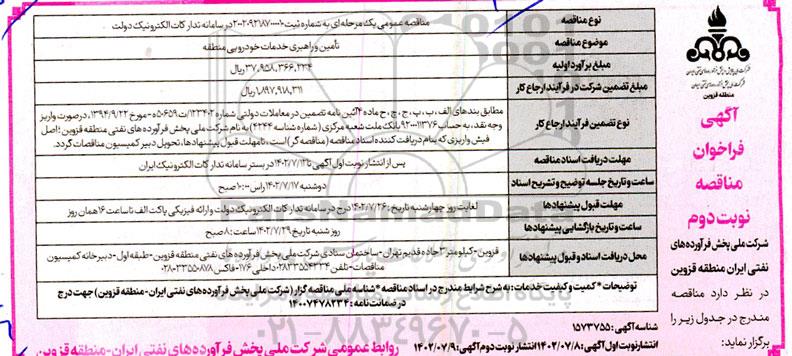 آگهی
فراخوان
مناقصه
نوبت دوم
شرکت ملی پخش فرآورده‌های
نفتی ایران منطقه قزوین
در نظر دارد مناقصه
مندرج در جدول زیر را
برگزار نماید:
منطقه قزوین
نوع مناقصه
مناقصه عمومی یک مرحله‌ای به شماره ثبت در سامانه تدارکات الکترونیک دولت
موضوع مناقصه
تأمین و راهبری خدمات خودرویی منطقه
مبلغ برآورد اولیه
۳۷,۹۵۸,۳۶۶,۲۳۴ ریال
مبلغ تضمین شرکت در فرآیند ارجاع کار
۱,۸۹۷,۹۱۸,۳۱۱ ریال
نوع تضمین فرآیند ارجاع کار
مطابق بندهای الف، ب، پ، ج، چ، ح ماده ۴ آئین نامه تضمین در معاملات دولتی شماره ۱۲۳۴۰۲/ت۵۰۶۵۹ه مورخ ۱۳۹۴/۹/۲۲، در صورت واریز
وجه نقد، به حساب بانک ملت شعبه مرکزی (شماره شناسه ۴۲۴۴) به نام شرکت ملی پخش فرآورده های نفتی منطقه قزوین؛ اصل
فیش واریزی که بنام دریافت کننده اسناد مناقصه (مناقصه گر) است، تا مهلت قبول پیشنهادها، تحویل دبیر کمیسیون مناقصات گردد.
مهلت دریافت اسناد مناقصه
پس از انتشار نوبت اول آگهی تا ۱۴۰۲/۷/۱۲ در بستر سامانه تدارکات الکترونیک ایران
ساعت و تاریخ جلسه توضیح و تشریح اسناد
دوشنبه ۱۴۰۲/۷/۱۷ راس ۱۰:۰۰ صبح
مهلت قبول پیشنهادها
لغایت روز چهارشنبه تاریخ: ۱۴۰۲/۷/۲۶ درج در سامانه تدارکات الکترونیک دولت و ارائه فیزیکی پاکت الف تا ساعت ۱۶ همان روز
ساعت و تاریخ بازگشایی پیشنهادها
روز شنبه تاریخ ۱۴۰۲/۷/۲۹ ساعت: ۸ صبح
محل دریافت اسناد و قبول پیشنهادها
قزوین-کیلومتر ۳ جاده قدیم تهران- ساختمان ستادی شرکت ملی پخش فرآورده های نفتی منطقه قزوین-طبقه اول-دبیرخانه کمیسیون
مناقصات-تلفن ۰۲۸۳۳۵۵۴۳۳۴ داخلی ۱۷۶-فاکس ۰۲۸۰۳۳۵۵۰۸۷۸
توضیحات * کمیت و کیفیت خدمات: به شرح شرایط مندرج در اسناد مناقصه * شناسه ملی مناقصه گزار (شرکت ملی پخش فرآورده های نفتی ایران-منطقه قزوین) جهت درج
در ضمانت نامه: ۱۴۰۰۷۴۷۸۲۳۴
شناسه آگهی: ۱۵۷۳۷۵۵
انتشار نوبت اول آگهی: ۱۴۰۲/۰۷/۰۸ انتشار نوبت دوم آگهی: ۱۴۰۲/۰۷/۰۹
روابط عمومی شرکت ملی پخش فرآورده‌های نفتی ایران-منطقه قزوین
۰۲۱-۸۸۳۴۹۶۷۰-۵